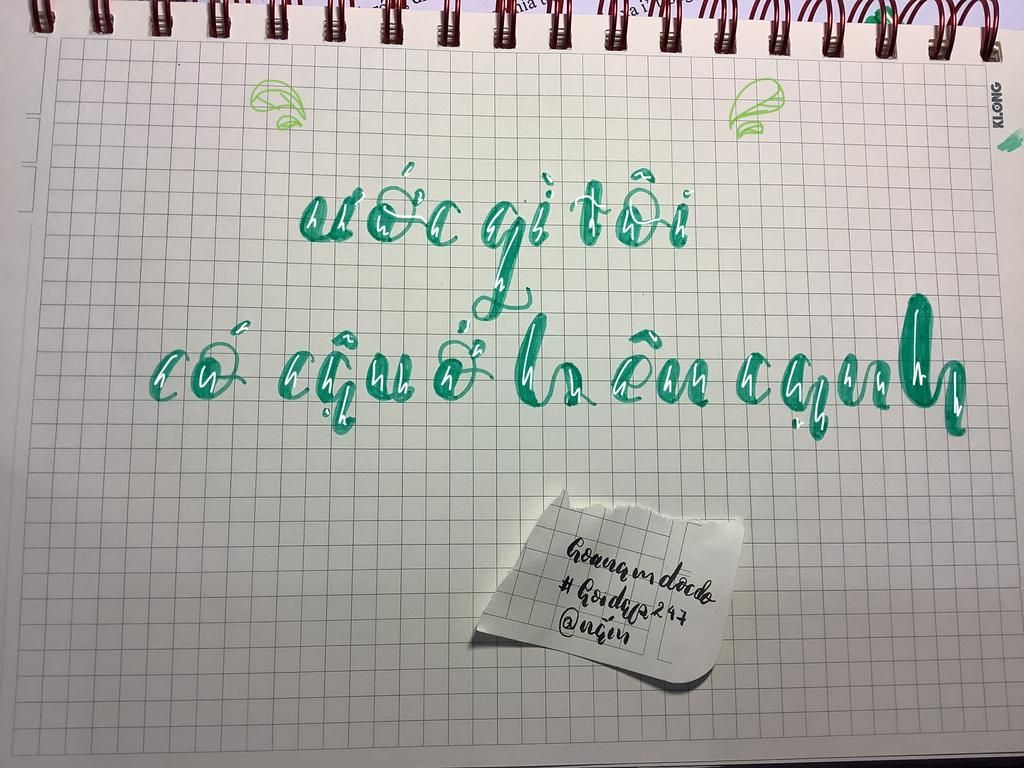 KLONG
ước gì tôi
có cậu ở bên cạnh
hoanamdocdo
#hoidap247